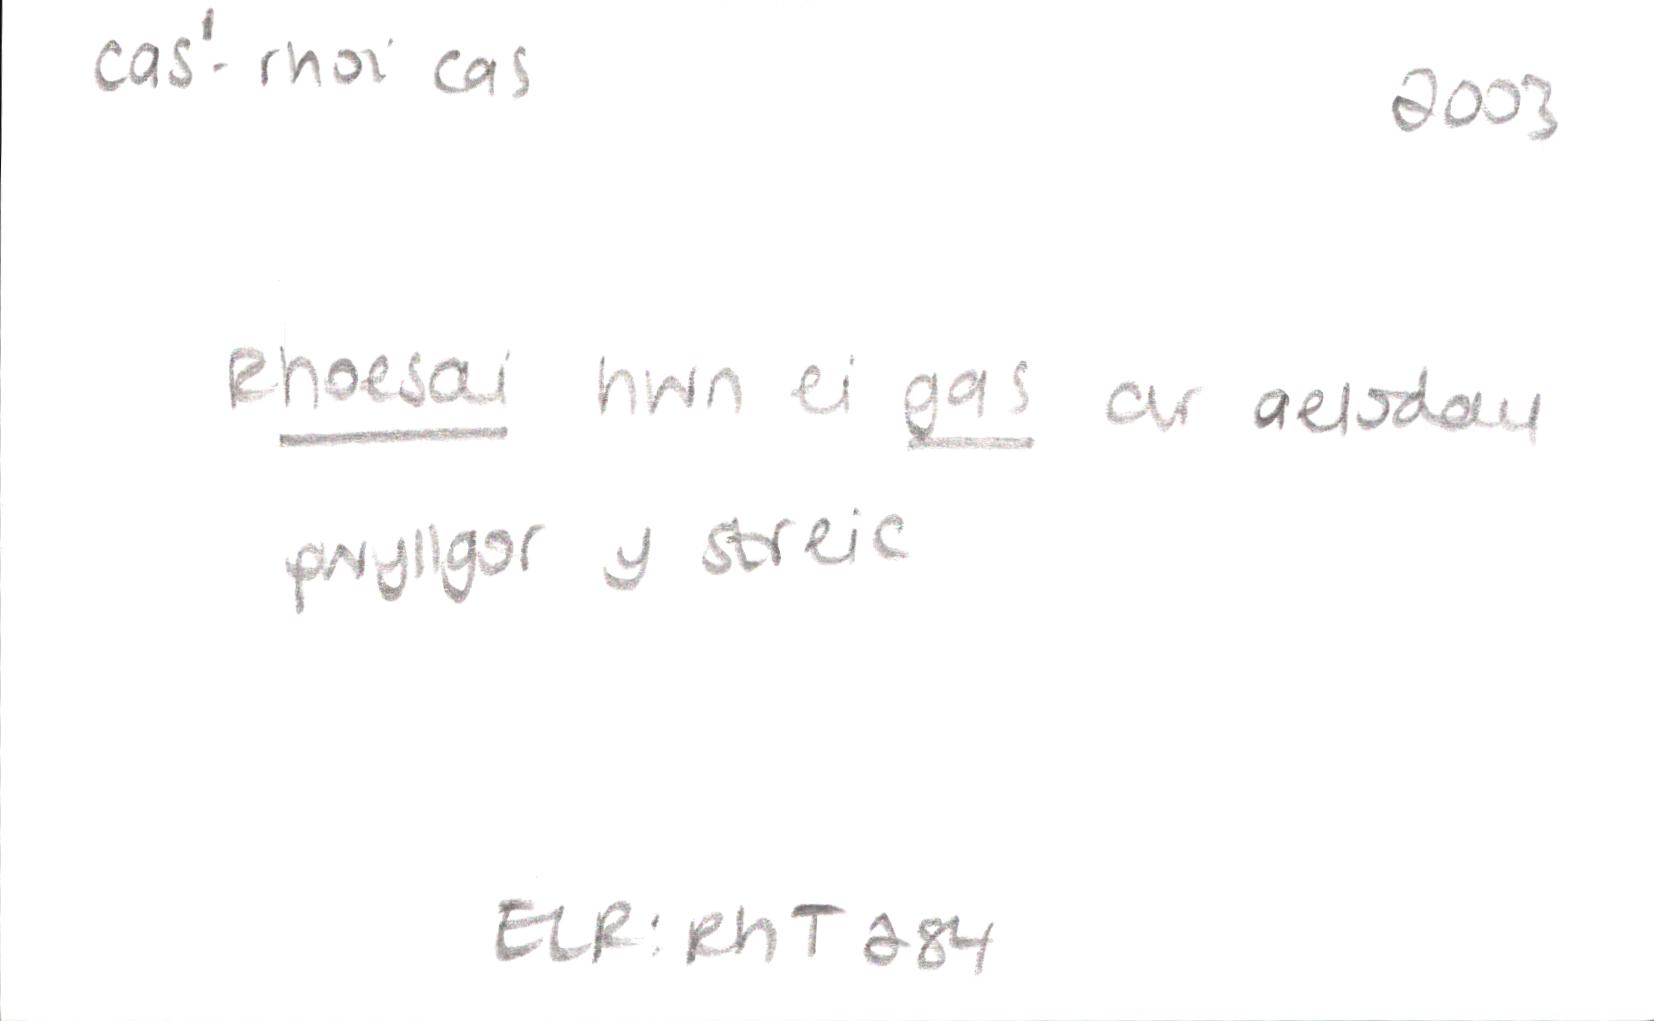 cas¹- rhoi cas
2003
Rhoesai hwn ei gas ar aelodau
pwyllgor y streic
ELR: RhT 284